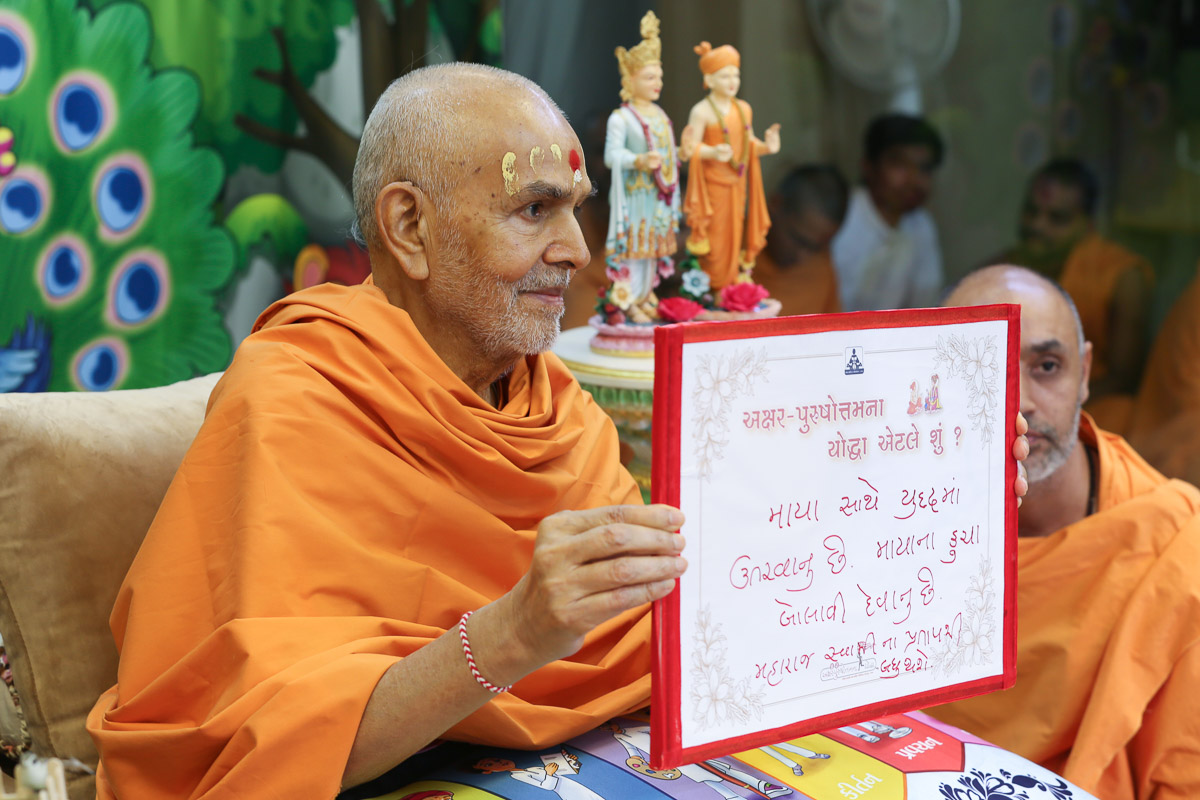 અક્ષર-પુરુષોત્તમના
યોદ્ધા એટલે શું ?
માયા સાથે યુદ્ધમાં
ઉતરવાનું છે. માયાના કુચા
બોલાવી દેવાનું છે.
મહારાજ સ્વામીના પ્રતાપથી
બધુ થશે.
પ્રવચન
કીર્તન